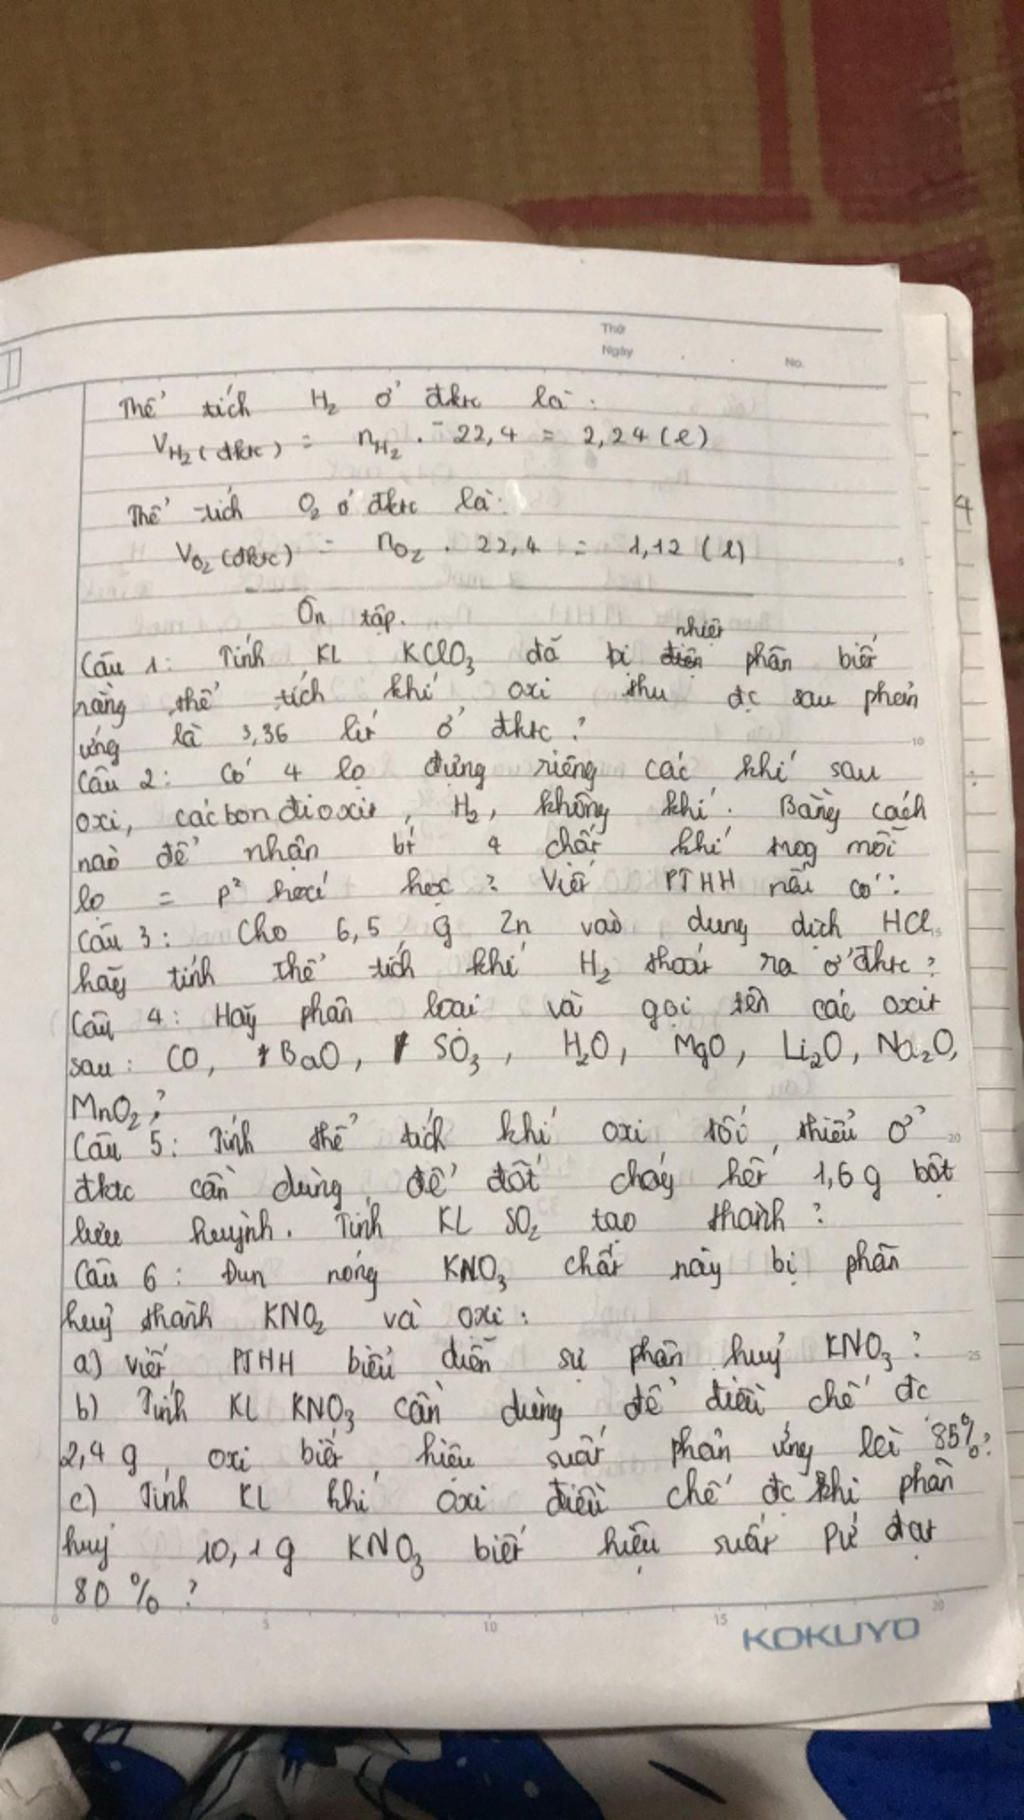 Thứ
Ngày
No.
Thể tích H₂ ở đktc là:
V_H₂(đktc) = n_H₂ . 22,4 = 2,24 (l)
Thể tích O₂ ở đktc là:
V_O₂(đktc) = n_O₂ . 22,4 = 1,12 (l)
4
Ôn tập.
nhiệt
Câu 1: Tính KL KClO₃ đã bị điện phân biết
rằng thể tích khí oxi thu đc sau phản
ứng là 3,36 lít ở đktc?
Câu 2: Có 4 lọ đựng riêng các khí sau
oxi, cácbonđioxit, H₂, không khí. Bằng cách
nào để nhận bt 4 chất khí trog mỗi
lọ = p² hoá học? Viết PTHH nếu có?
Câu 3: Cho 6,5 g Zn vào dung dịch HCl
hãy tính thể tích khí H₂ thoát ra ở đktc?
Câu 4: Hãy phân loại và gọi tên các oxit
sau: CO, BaO, SO₃, H₂O, MgO, Li₂O, Na₂O,
MnO₂?
Câu 5: Tính thể tích khí oxi tối thiểu ở
đktc cần dùng để đốt cháy hết 1,6 g bột
lưu huỳnh. Tính KL SO₂ tạo thành?
Câu 6: Đun nóng KNO₃ chất này bị phân
huỷ thành KNO₂ và oxi:
a) Viết PTHH biểu diễn sự phân huỷ KNO₃?
b) Tính KL KNO₃ cần dùng để điều chế đc
2,4 g oxi biết hiệu suất phản ứng là 85%?
c) Tính KL khí oxi điều chế đc khi phân
huỷ 10,1 g KNO₃ biết hiệu suất PƯ đạt
80%?
0 5 10 15 20
KOKUYO